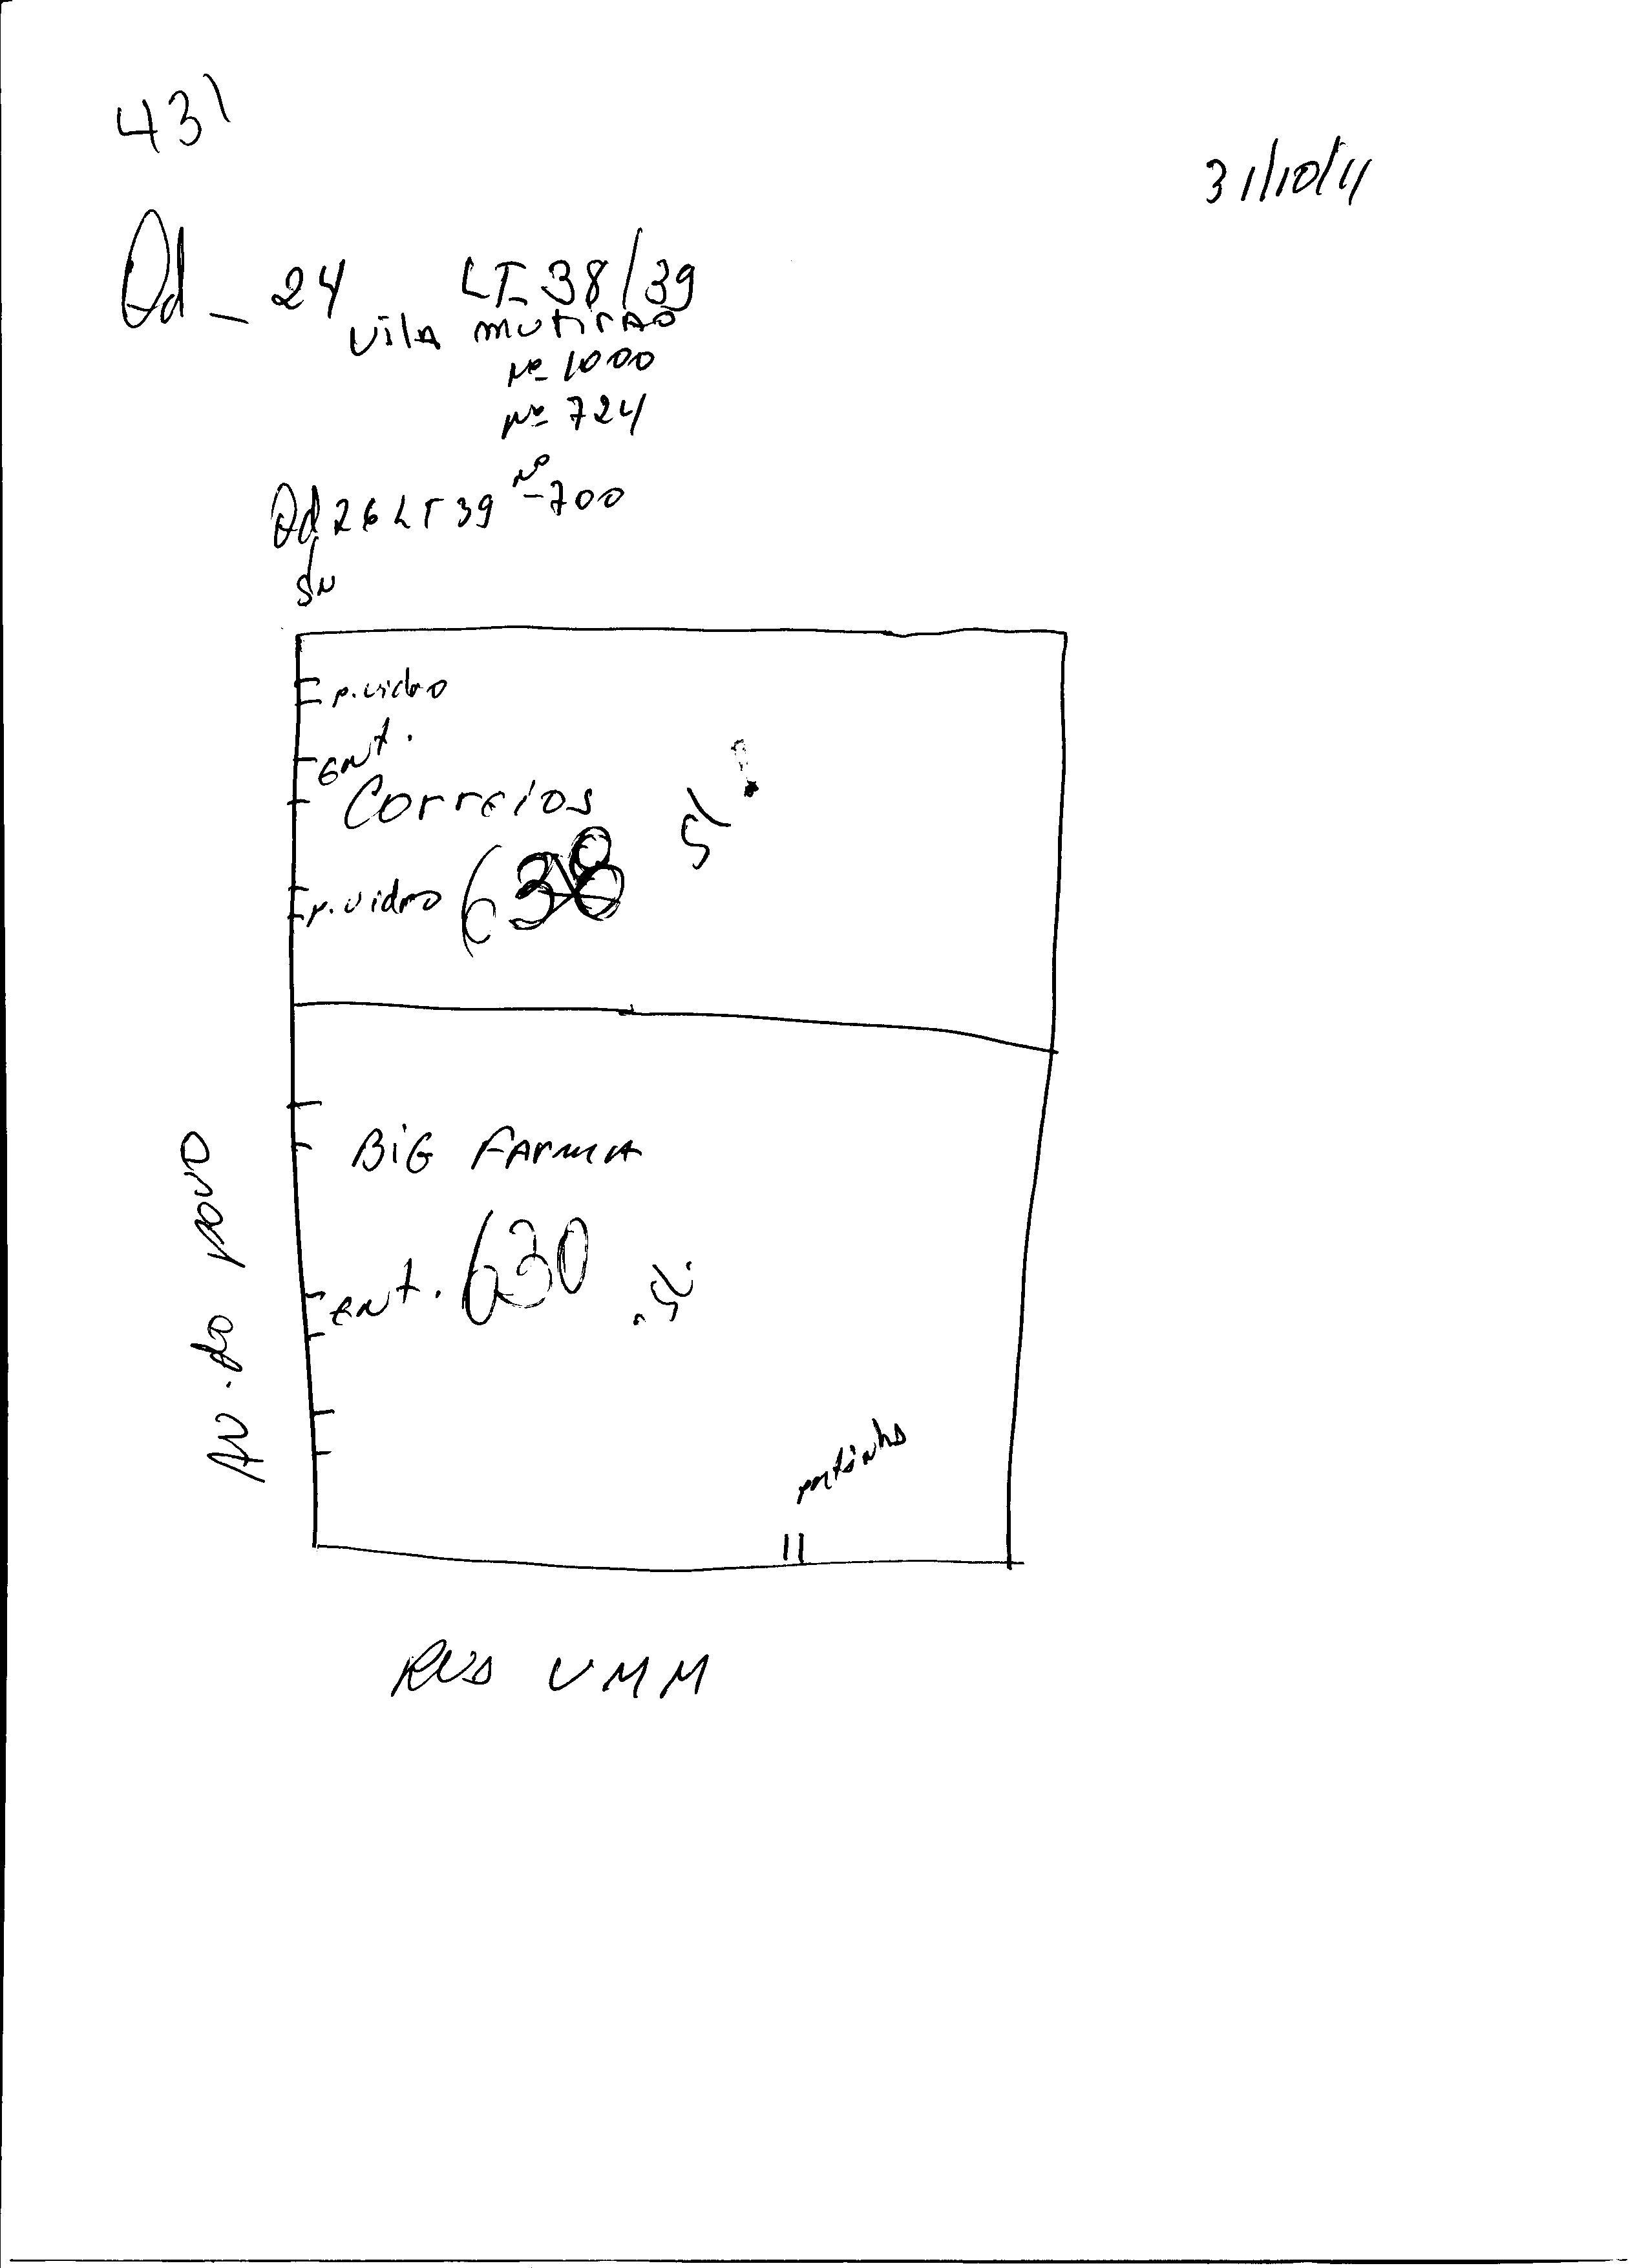 431
31/10/11
Qd _ 24 LT 38/39
Vila mutirão
Nº 1000
Nº 724
Qd 26 LT 39 Nº 700
S/N
p. vidro
ent.
Correios
p. vidro 638
BIG FARMA
ent. 630
portinha
Av. do povo
RUA VMM